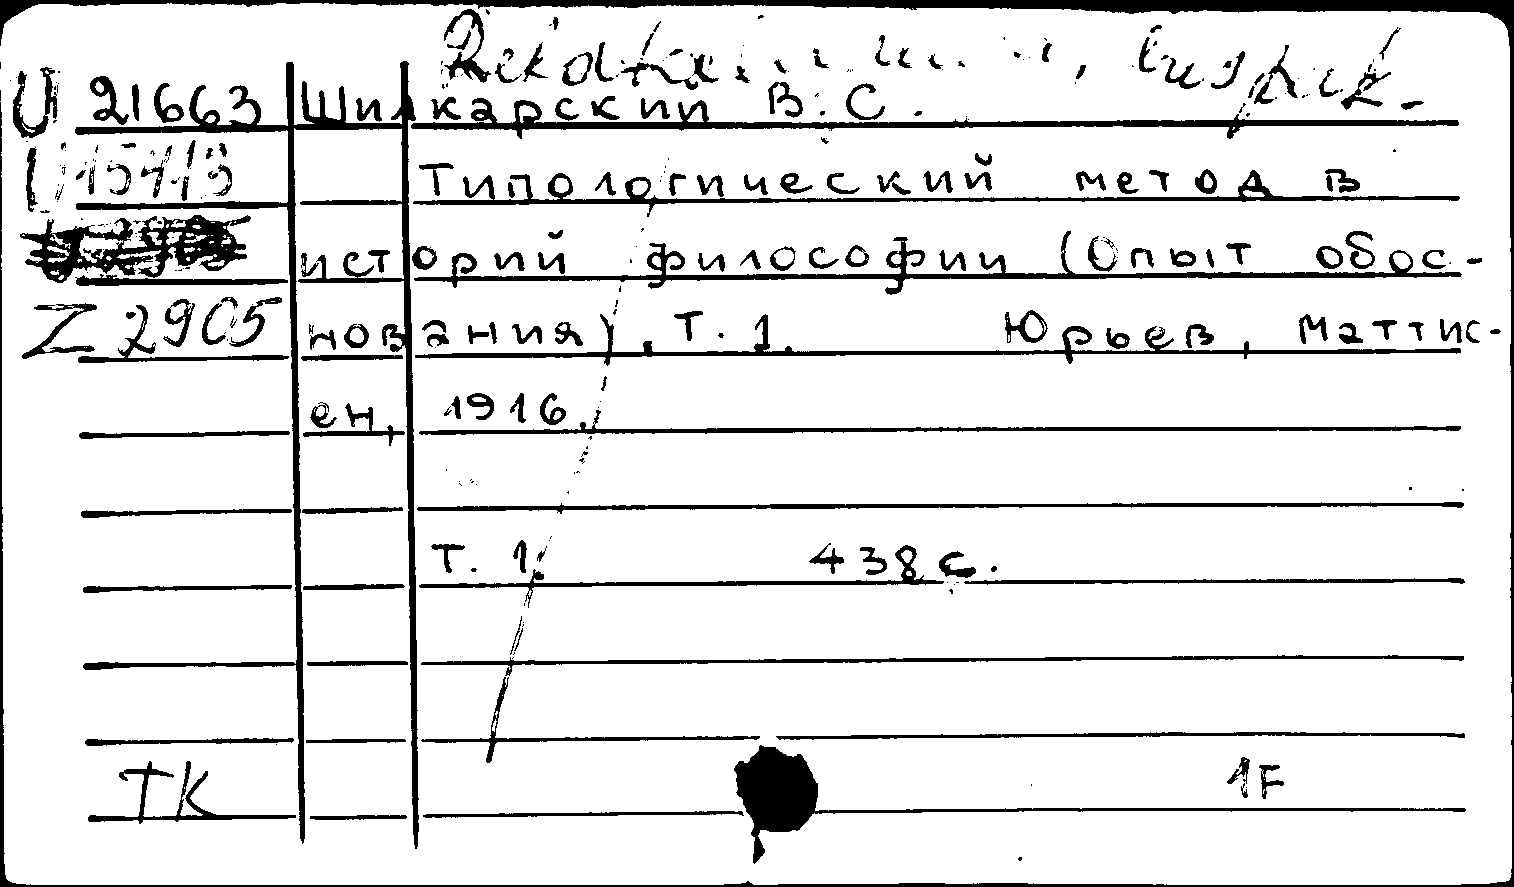 U 21663 Шилкарский В. С.
U 15413 Типологический метод в
историй философии (Опыт обос-
Z 2905 нования). Т. 1. Юрьев, Маттис-
ен, 1916.
Т. 1. 438 с.
TK 1F